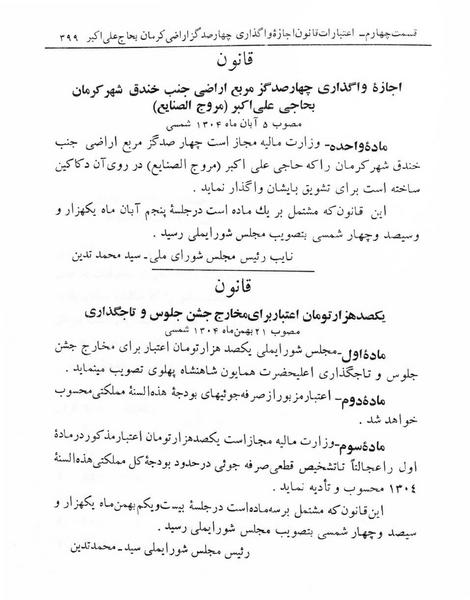 قسمت چهارم ـ اعتبارات قانون اجازهٔ واگذاری چهارصدگز اراضی کرمان بحاج علی اکبر ۳۹۹
قانون
اجازهٔ واگذاری چهارصدگز مربع اراضی جنب خندق شهر کرمان
بحاجی علی اکبر (مروج الصنایع)
مصوب ۵ آبان ماه ۱۳۰۴ شمسی
مادهٔ واحده ـ وزارت مالیه مجاز است چهار صدگز مربع اراضی جنب
خندق شهر کرمان را که حاجی علی اکبر (مروج الصنایع) در روی آن دکاکین
ساخته است برای تشویق بایشان واگذار نماید .
این قانون که مشتمل بر یك ماده است در جلسهٔ پنجم آبان ماه یکهزار و
وسیصد و چهار شمسی بتصویب مجلس شورایملی رسید .
نایب رئیس مجلس شورای ملی ـ سید محمد تدین
قانون
یکصد هزار تومان اعتبار برای مخارج جشن جلوس و تاجگذاری
مصوب ۲۱ بهمن ماه ۱۳۰۴ شمسی
مادهٔ اول ـ مجلس شورایملی یکصد هزار تومان اعتبار برای مخارج جشن
جلوس و تاجگذاری اعلیحضرت همایون شاهنشاه پهلوی تصویب مینماید .
مادهٔ دوم ـ اعتبار مزبور از صرفه جوئیهای بودجهٔ هذه السنهٔ مملکتی محسوب
خواهد شد .
مادهٔ سوم ـ وزارت مالیه مجاز است یکصد هزار تومان اعتبار مذکور در مادهٔ
اول را عجالتاً تا تشخیص قطعی صرفه جوئی در حدود بودجهٔ کل مملکتی هذه السنهٔ
۱۳۰۴ محسوب و تأدیه نماید .
این قانون که مشتمل بر سه ماده است در جلسهٔ بیست و یکم بهمن ماه یکهزار و
سیصد و چهار شمسی بتصویب مجلس شورایملی رسید .
رئیس مجلس شورایملی سید ـ محمد تدین